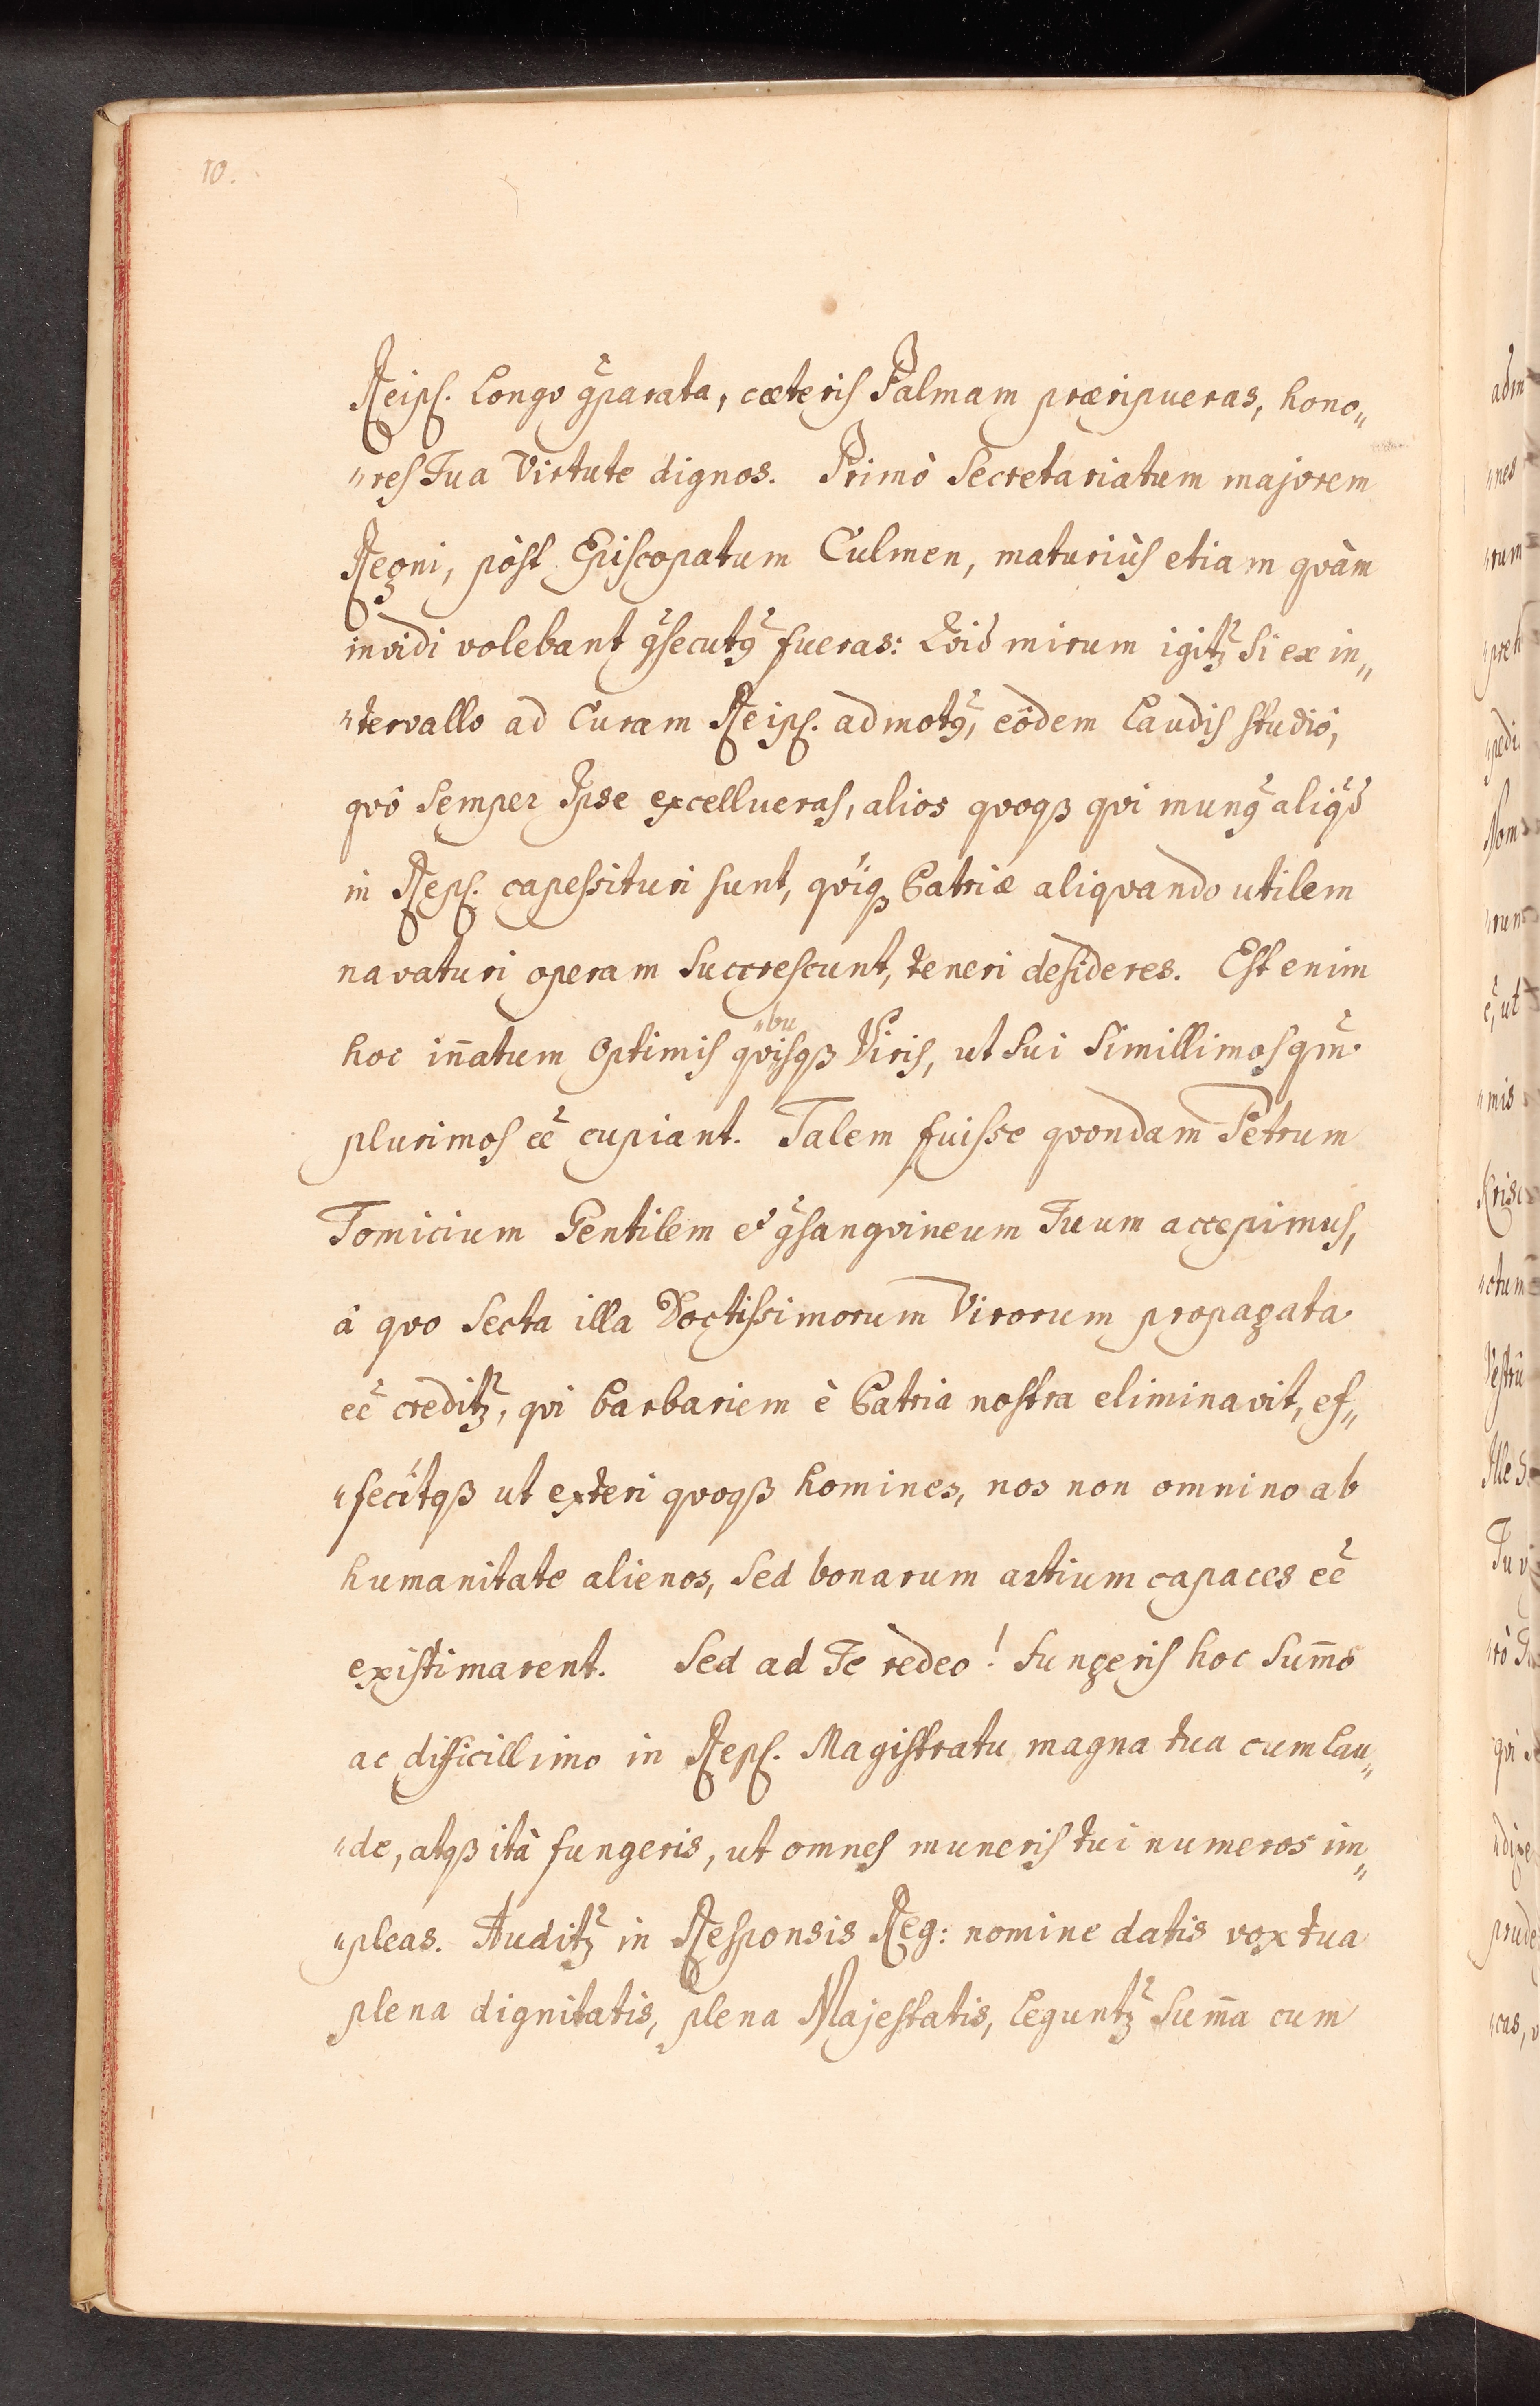 10.
Reipſ. Longo ꝯparata, cæteriſ Palmam præripueras, hono„
„reſ Tua Virtute dignos. Primò Secretariatum majorem
Regni, pòſt Epiſcopatum Culmen, maturiùſ etiam qvàm
invidi volebant ꝯſecutꝰ fueras: Qvid mirum igitꝫ Si ex in„
„tervallo ad Curam Reipſ. admotꝰ, eôdem Laudiſ ſtudiô,
qvô Semper Ipse excellueraſ, alios qvoqꝫ qvi munꝰ aliqd
in Repſ. capeſsituri ſunt, qviqꝫ Patriæ aliqvando utilem
navaturi operam Succreſcunt, teneri deſideres. Eſt enim
„bu
hoc iñatum Optimiſ qviſqꝫ Viriſ, ut Sui Simillimoſ qm̃
plurimoſ eẽ cupiant. Talem fuiſse qvondam Petrum
Tomicium Gentilem et ꝯſangvineum Tuum accepimuſ,
â qvo Secta illa Doctiſsimorum Virorum propagata
eẽ creditꝫ, qvi barbariem è Patria noſtra eliminavit, ef„
„fecitqꝫ ut exteri qvoqꝫ homines, nos non omnino ab
humanitate alienos, Sed bonarum artium capaces eẽ
exiſtimarent. Sed ad Te redeo! Fungeriſ hoc Sum̃o
ac difficillimo in Repſ. Magiſtratu magna tua cum Lau„
„de, atqꝫ ità fungeris, ut omneſ muneriſ tui numeros im„
„pleas. Auditꝫ in Reſponsis Reg: nomine datis vox tua
plena dignitatis, plena Majeſtatis, Leguntꝫ Sum̃a cum